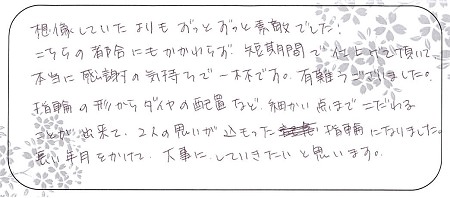 想像していたよりもずっとずっと素敵でした!
こちらの都合にもかかわらず、短期間で仕上げて頂いて、
本当に感謝の気持ちで一杯です。有難うございました。
指輪の形からダイヤの配置など、細かい点までこだわる
ことが出来て、2人の思いが込もった 指輪になりました。
長い年月をかけて、大事にしていきたいと思います。